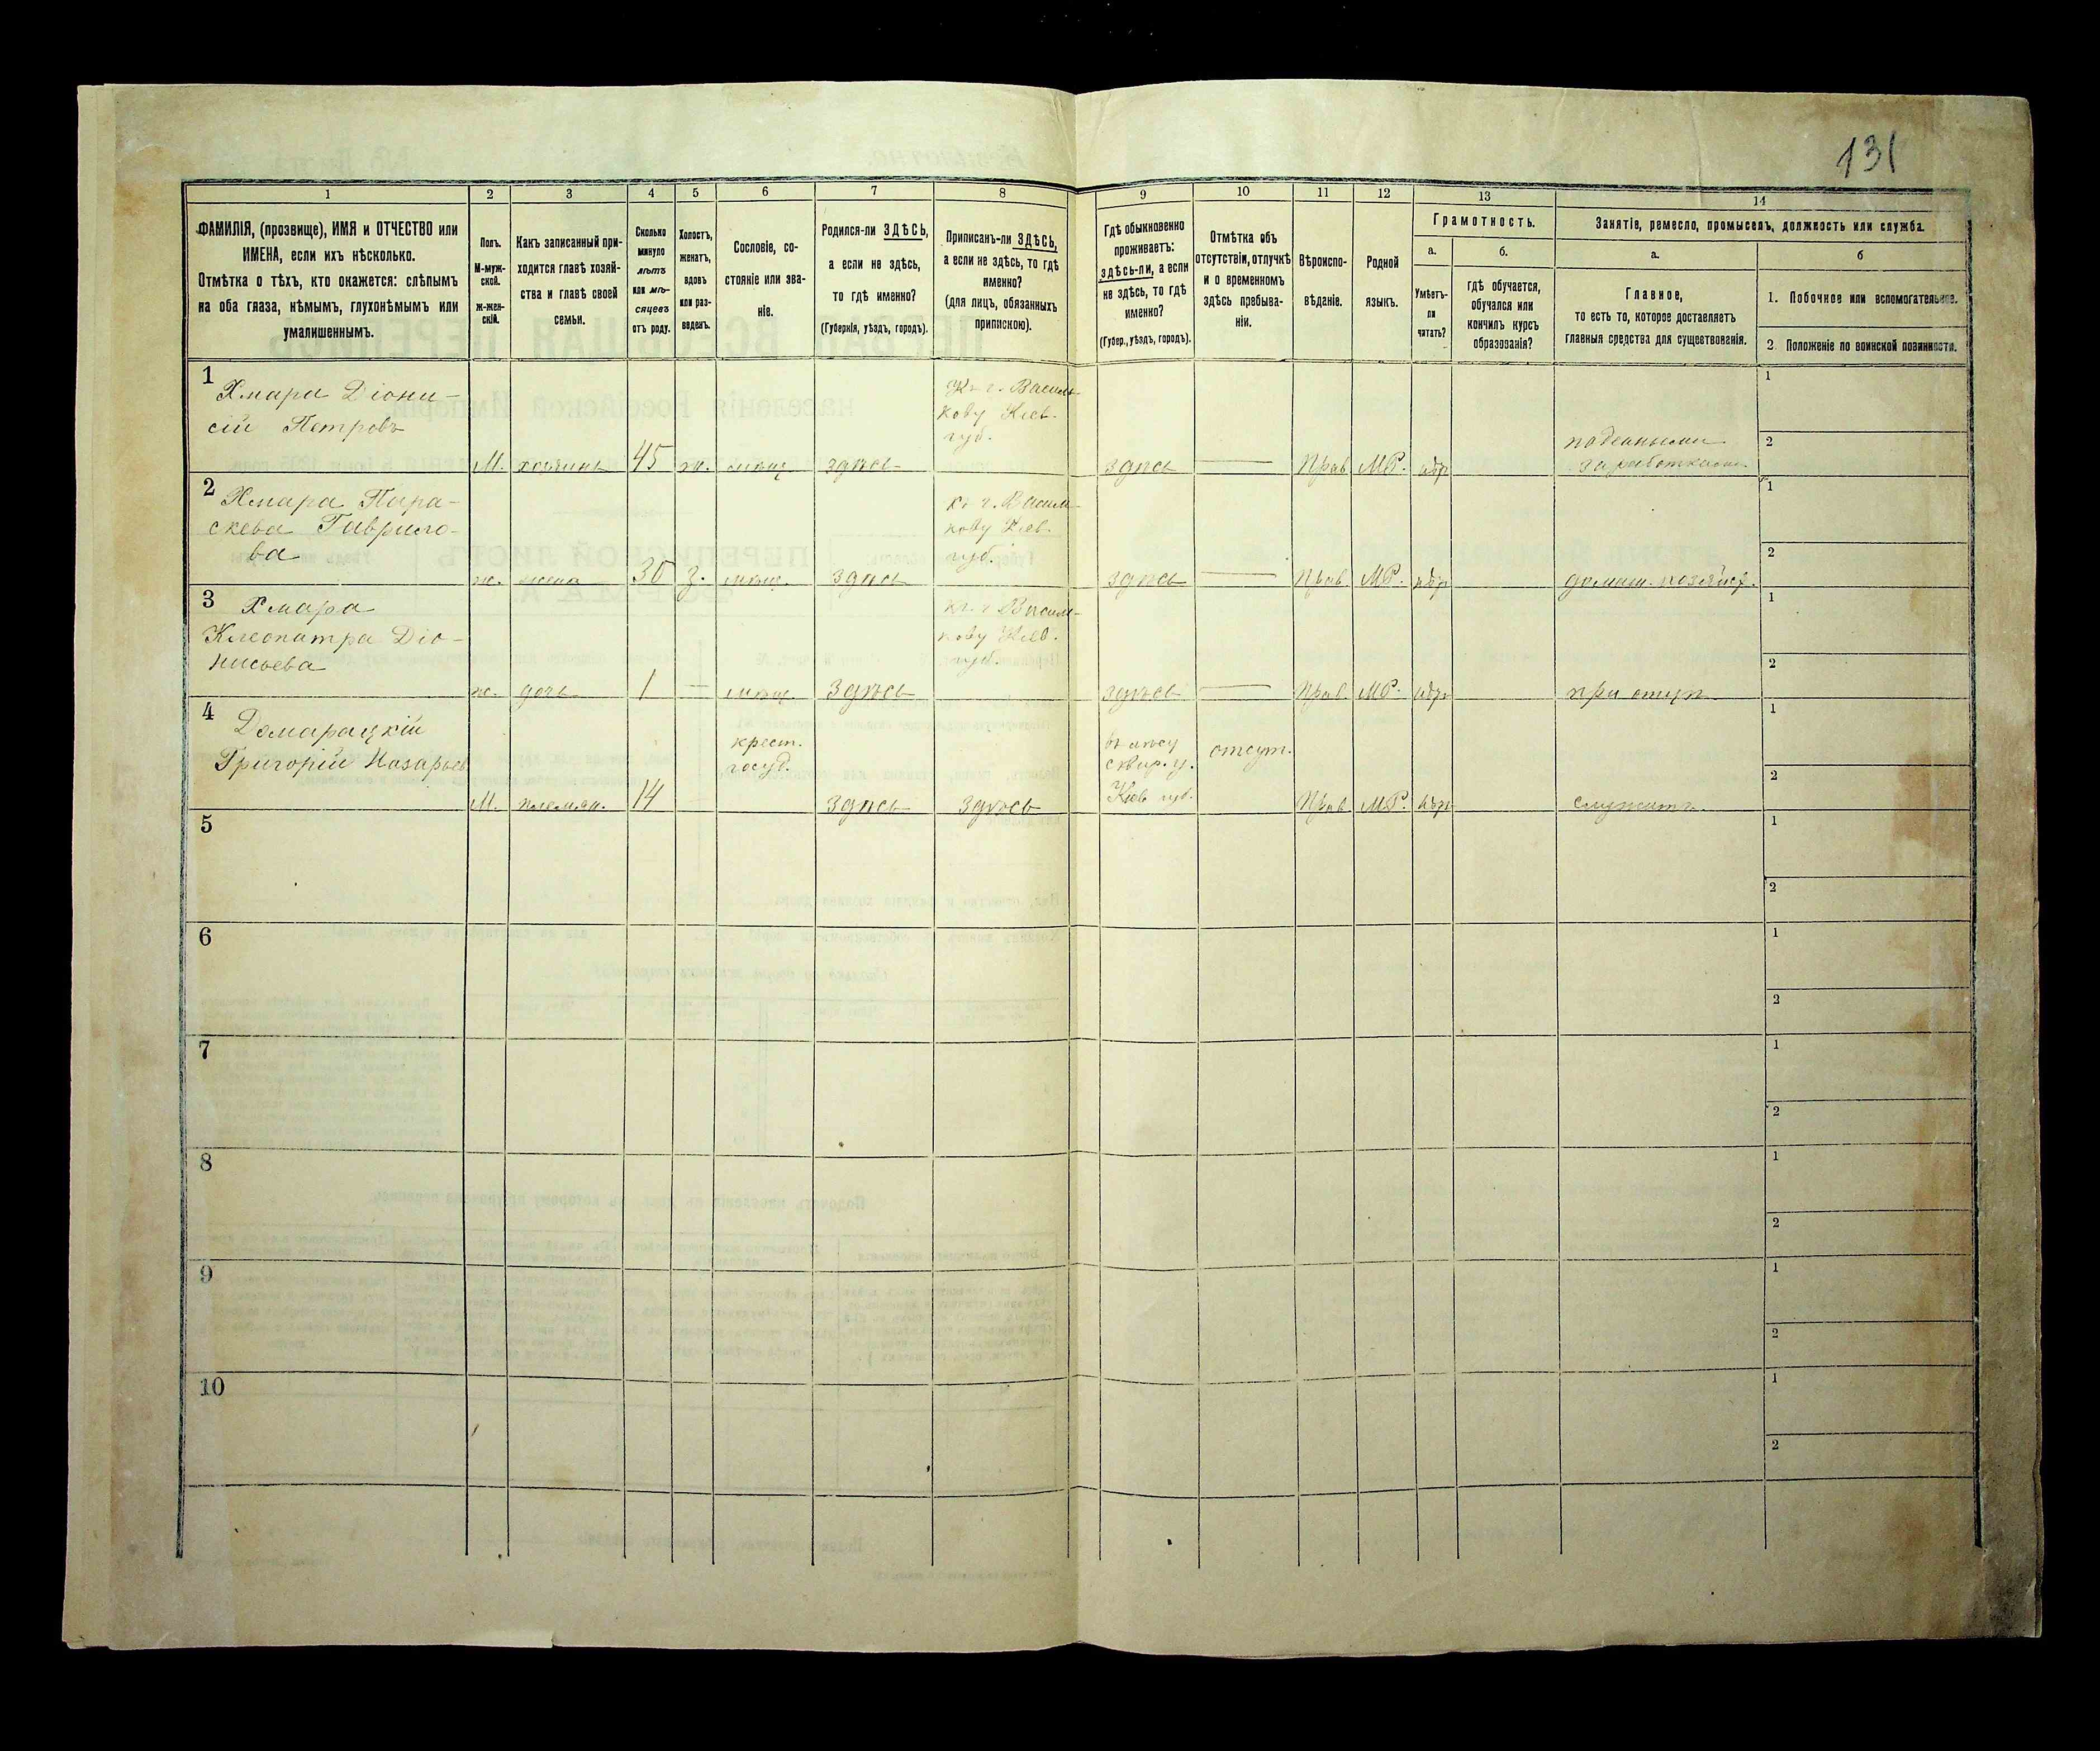 131
1 2 3 4 5 6 7 8 9 10 11 12 13 14
ФАМИЛІЯ, (прозвище), ИМЯ и ОТЧЕСТВО или
ИМЕНА, если ихъ нѣсколько.
Отмѣтка о тѣхъ, кто окажется: слѣпымъ
на оба глаза, нѣмымъ, глухонѣмымъ или
умалишеннымъ.
Полъ.
М-муж-
ской.
ж-жен-
скій.
Какъ записанный при-
ходится главѣ хозяй-
ства и главѣ своей
семьи.
Сколько
минуло
лѣтъ
или мѣ-
сяцевъ
отъ роду.
Холостъ,
женатъ,
вдовъ
или раз-
веденъ.
Сословіе, со-
стояніе или зва-
ніе.
Родился-ли ЗДѢСЬ,
а если не здѣсь,
то гдѣ именно?
(Губернія, уѣздъ, городъ).
Приписанъ-ли ЗДѢСЬ,
а если не здѣсь, то гдѣ
именно?
(для лицъ, обязанныхъ
припискою).
Гдѣ обыкновенно
проживаетъ:
здѣсь-ли, а если
не здѣсь, то гдѣ
именно?
(Губер., уѣздъ, городъ).
Отмѣтка объ
отсутствіи, отлучкѣ
и о временномъ
здѣсь пребыва-
ніи.
Вѣроиспо-
вѣданіе.
Родной
языкъ.
Грамотность.
а.
Умѣетъ-
ли
читать?
б.
гдѣ обучается,
обучался или
кончилъ курсъ
образованія?
Занятіе, ремесло, промыселъ, должность или служба.
а.
Главное,
то есть то, которое доставляетъ
главныя средства для существованія.
б
1. Побочное или вспомогательное.
2. Положеніе по воинской повинности.
1
Хмара Діони-
сій Петровъ
М. хозяинъ 45 ж. мѣщ. здѣсь
Къ г. Василь-
кову Кіев.
губ.
здѣсь — Прав. МР. нѣтъ
поденными
заработками
1
2
2
Хмара Пара-
скева Гаврило-
ва
ж. жена 30 з. мѣщ. здѣсь
къ г. Василь-
кову Кіев.
губ.
здѣсь — Прав. МР. нѣтъ домаш. хозяйст.
1
2
3
Хмара
Клеопатра Діо-
нисьева
ж. дочь 1 — мѣщ. здѣсь
къ г. Василь-
кову Кіев.
губ.
здѣсь — Прав. МР. нѣтъ при отцѣ
1
2
4
Домарацкій
Григорій Назарьев
М. племян. 14
крест.
госуд.
здѣсь здѣсь
сквир. у.
Кіев. губ.
отсут.
Прав. МР. нѣтъ служитъ
1
2
5
1
2
6
1
2
7
1
2
8
1
2
9
1
2
10
1
2